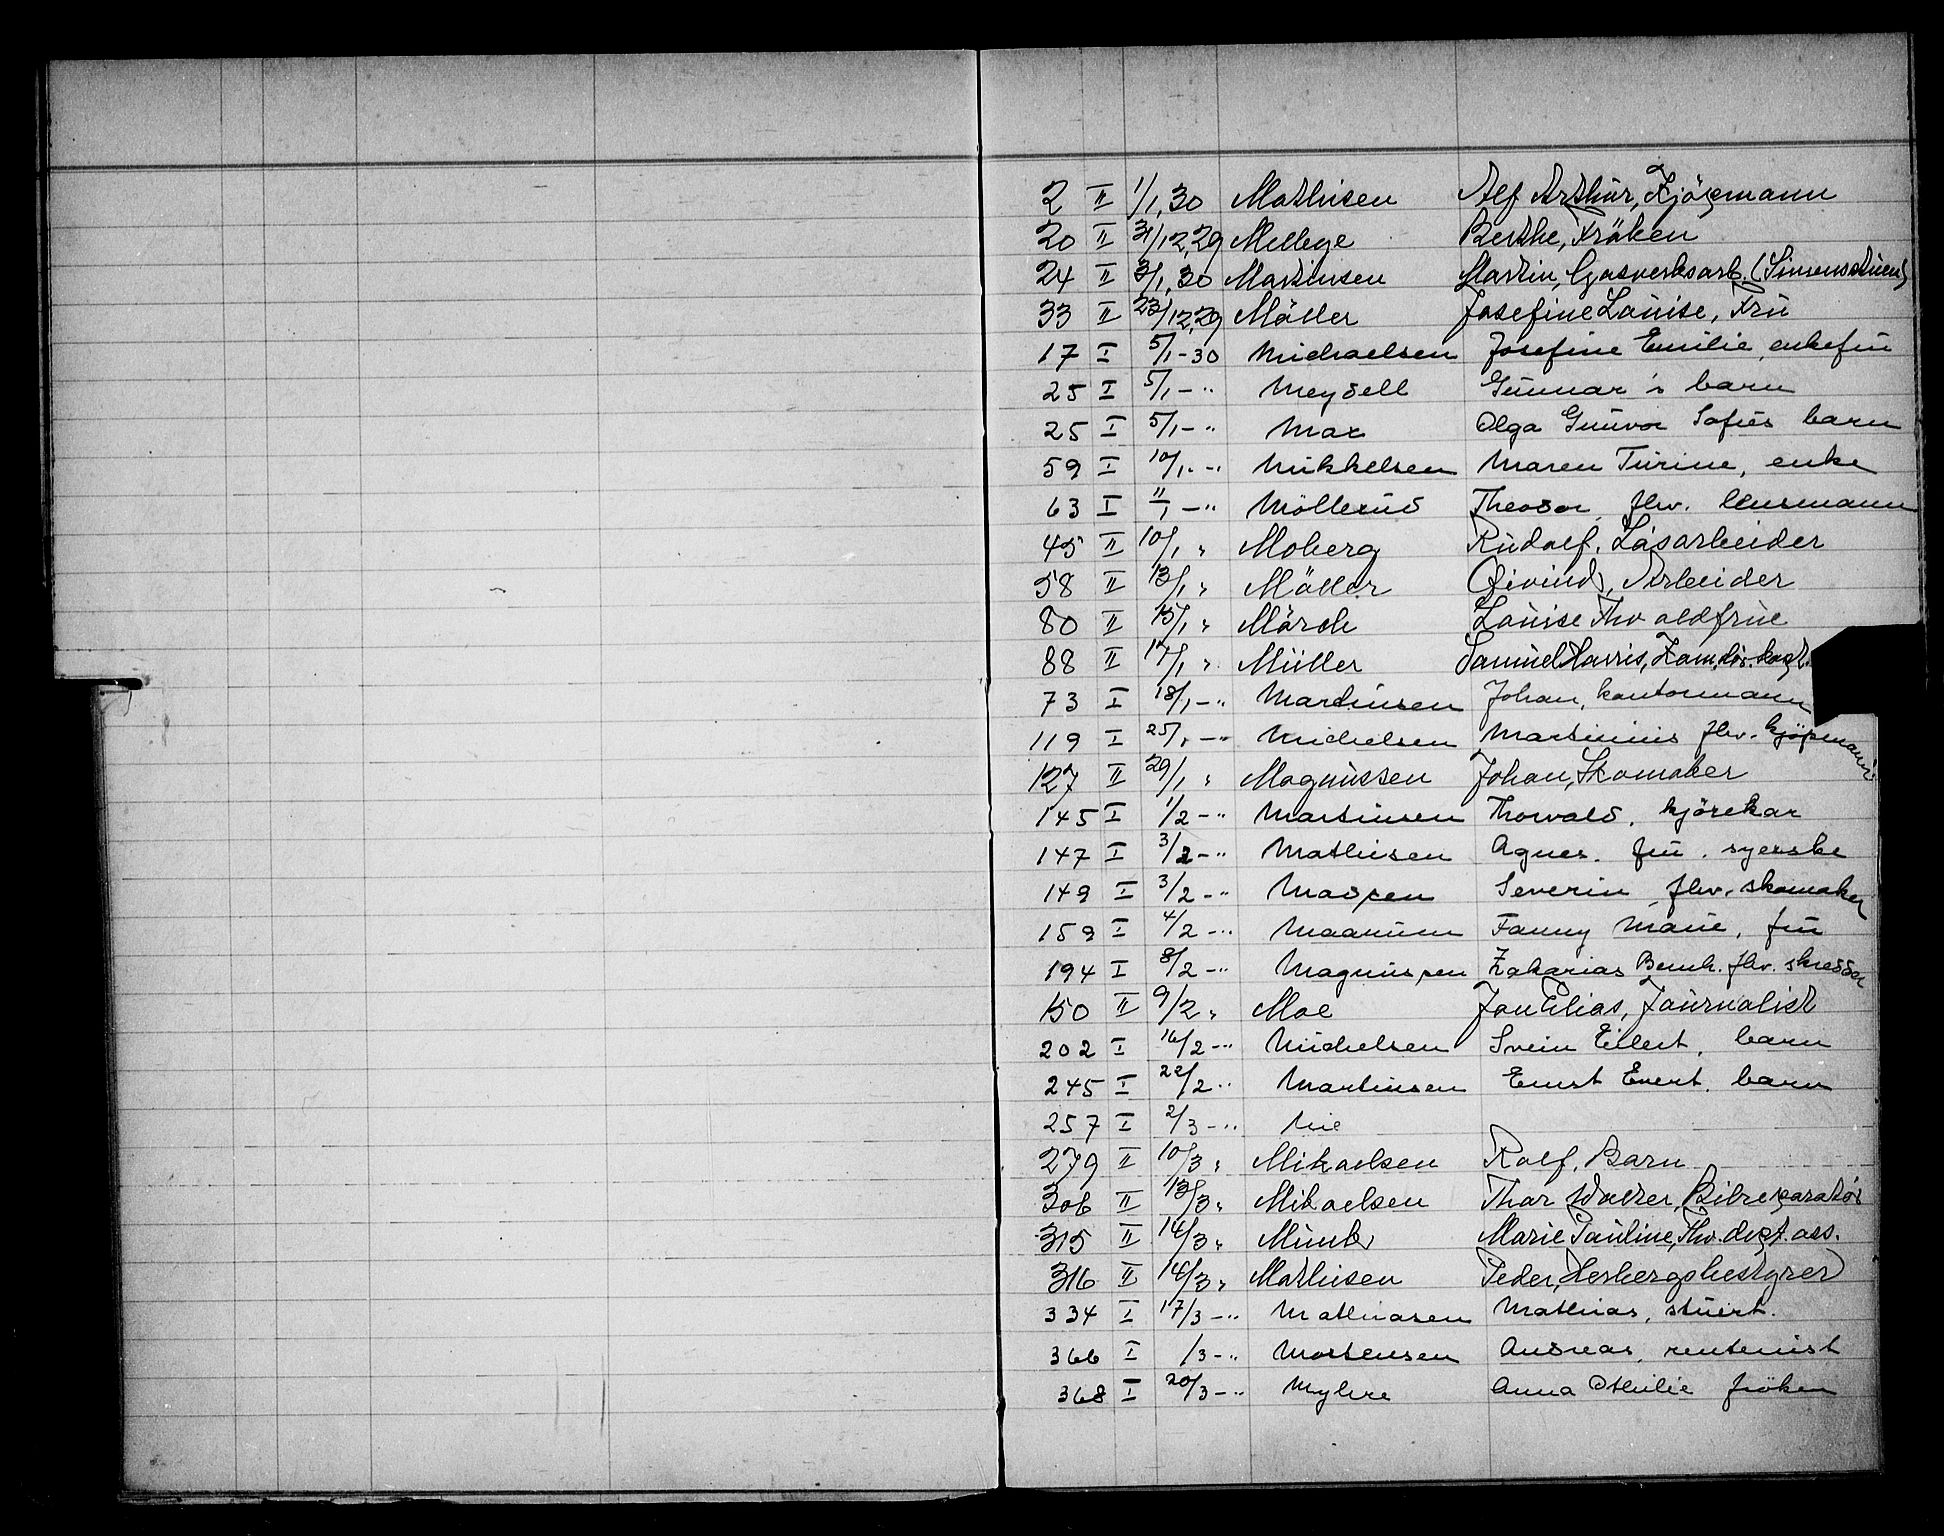 2 II 1/1,30 Mathisen Alf Arthur, Kjöpmann
20 II 31/12,29 Mellege Berthe, Fröken
24 II 3/1,30 Martinsen Martin, Gasverksarb. (Simensstuen)
33 II 23/12,29 Möller Josefine Louise, Fru
17 I 5/1-30 Michaelsen Josefine Emilie enkefru
25 I 5/1-" Meydell Gunnar's barn
25 I 5/1-" Max Olga Gunvor Sofies barn
59 I 10/1-" Mikkelsen Maren Turine, enke
63 I 11/1-" Möllerud Theodor, fhv. lensmann
45 II 10/1 " Moberg Rudolf, Lösarbeider
58 II 13/1 " Möller Öivind, Arbeider
80 II 15/1 " Mörch Louise Fhv oldfrue
88 II 17/1 " Müller Samuel Harris,
73 I 18/1-" Martinsen Johan, kontormann
119 I 25/1-" Michelsen Martinius fhv. kjöpmann
127 II 29/1 " Magnussen Johan, Skomaker
145 I 1/2-" Martinsen Thorvald, kjörekar
147 I 3/2-" Mathisen Agnes. fru. syerske
149 I 3/2-" Madsen Severin fhv. skomaker
159 I 4/2-" Maanum Fanny Marie, fru
194 I 8/2-" Magnussen Zakarias Bernh. fhv. skredder
150 II 9/2 " Moe Jon Elias, Journalist
202 I 16/2-" Michelsen Svein Eilert, barn
245 I 22/2-" Martinsen Ernst Evert, barn
257 I 2/3-" Mie
279 II 10/3 " Mikaelsen Rolf, Barn
306 II 13/3 " Mikaelsen Thor Walter, Bilreparatör
315 II 14/3 " Munk Marie Pauline, Fhv. dept. ass.
316 II 14/3 " Mathisen Peder, Herbergsbestyrer
334 I 17/3-" Mathiasen Mathias, stuert.
366 I /3-" Mortensen Andreas, rentenist
368 I 20/3-" Myhre Anna Othilie fröken